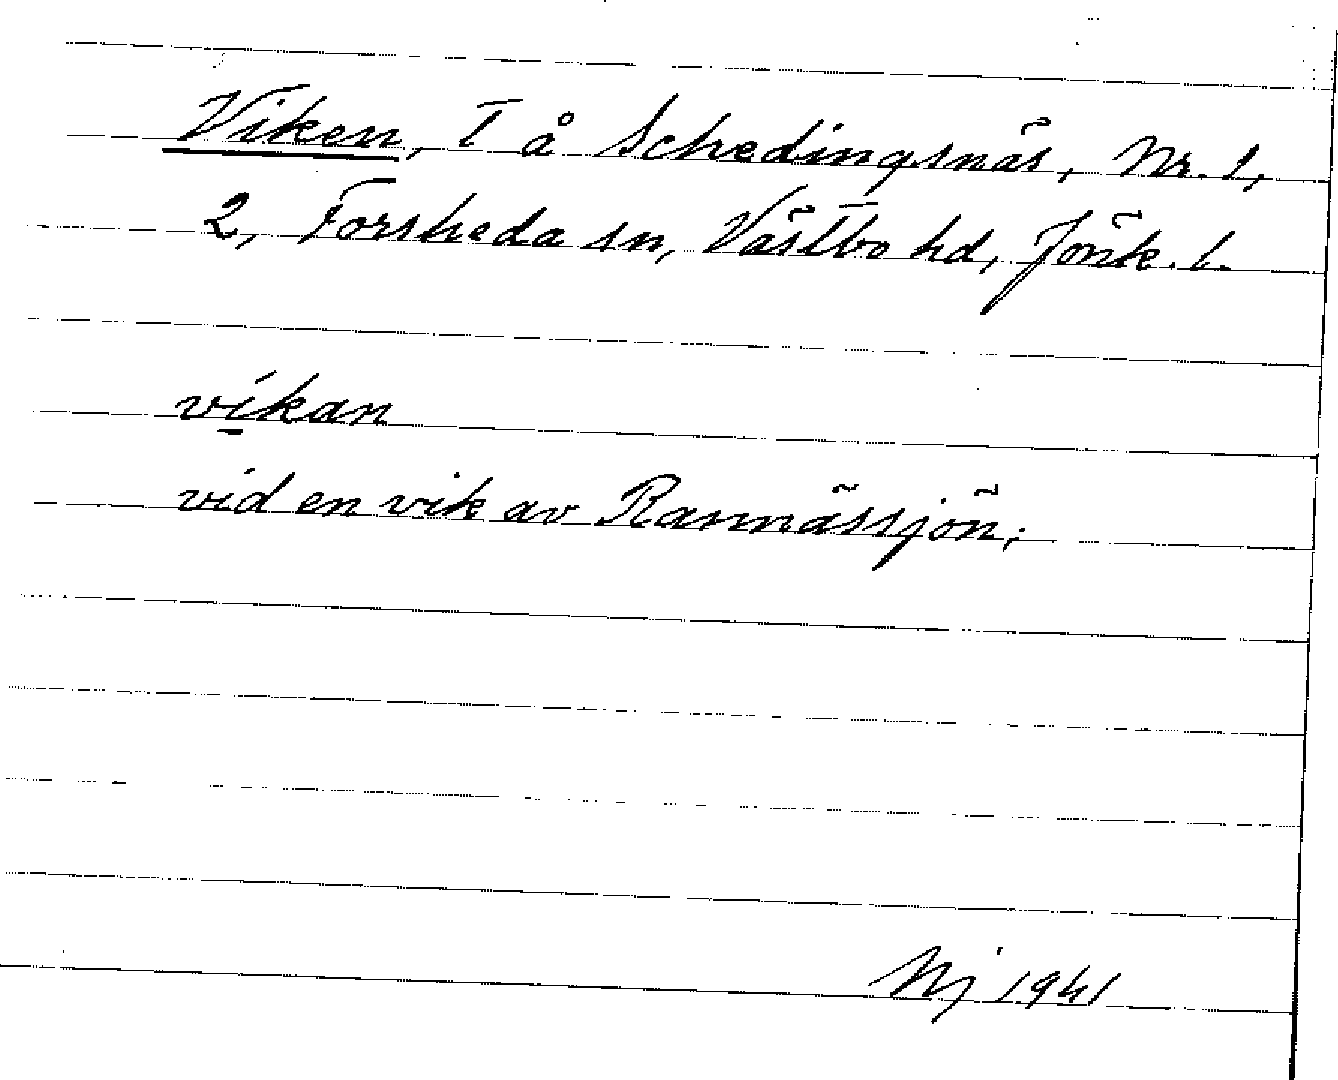 Viken, T å Schedingsnäs, Nr. 1,
2, Forsheda sn, Västbo hd, Jönk. l.
víkan
vid en vik av Rannässjön;
Nj 1941